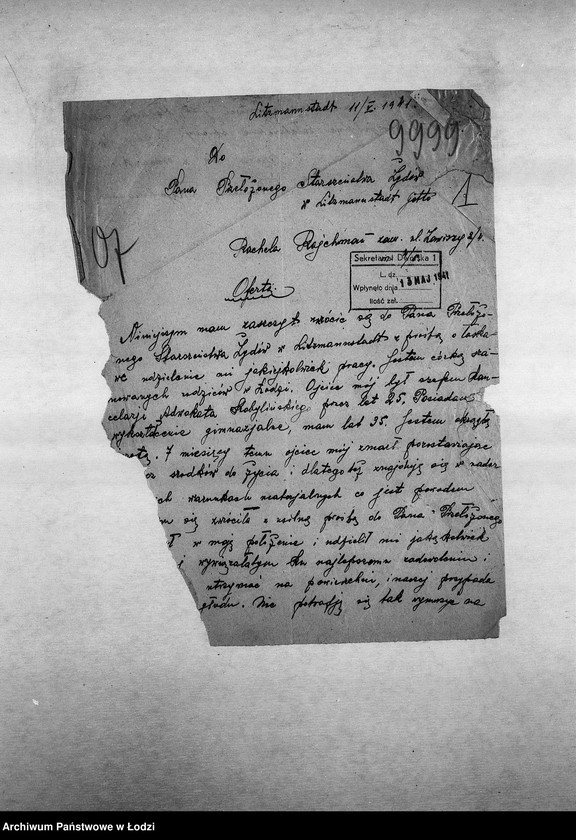 Litzmannstadt 11/V. 1941.
9999
Do
Pana Przełożonego Starszeństwa Żydów
w Litzmannstadt Getto
1
07
Rachela Rajchman zam. ul. Zawiszy 2/4.
Sekretariat Dworska 1
L. dz.
Wpłynęło dnia 13 MAJ 1941
Ilość zał.
Oferta
Niniejszym mam zaszczyt zwrócić się do Pana Przełożo-
nego Starszeństwa Żydów w Litzmannstadt z prośbą o łaska-
we udzielenie mi jakiejkolwiek pracy. Jestem córką sza-
nowanych rodziców w Łodzi. Ojciec mój był szefem kan-
celarji Adwokata Kobylińskiego przez lat 25. Posiadam
wykształcenie gimnazjalne, mam lat 35. Jestem okrągłą
7 miesięcy temu ojciec mój zmarł pozostawiając
środków do życia i dlatego też znajduję się w nader
warunkach materjalnych co jest powodem
się zwróciła z usilną prośbą do Pana Przełożonego
w moje położenie i udzielił mi jakąkolwiek
wywiązałabym ku najlepszemu zadowoleniu i
utrzymać na powierzchni, inaczej przypada
głodu. Nie potrafię się tak wymowie na
Archiwum Państwowe w Łodzi